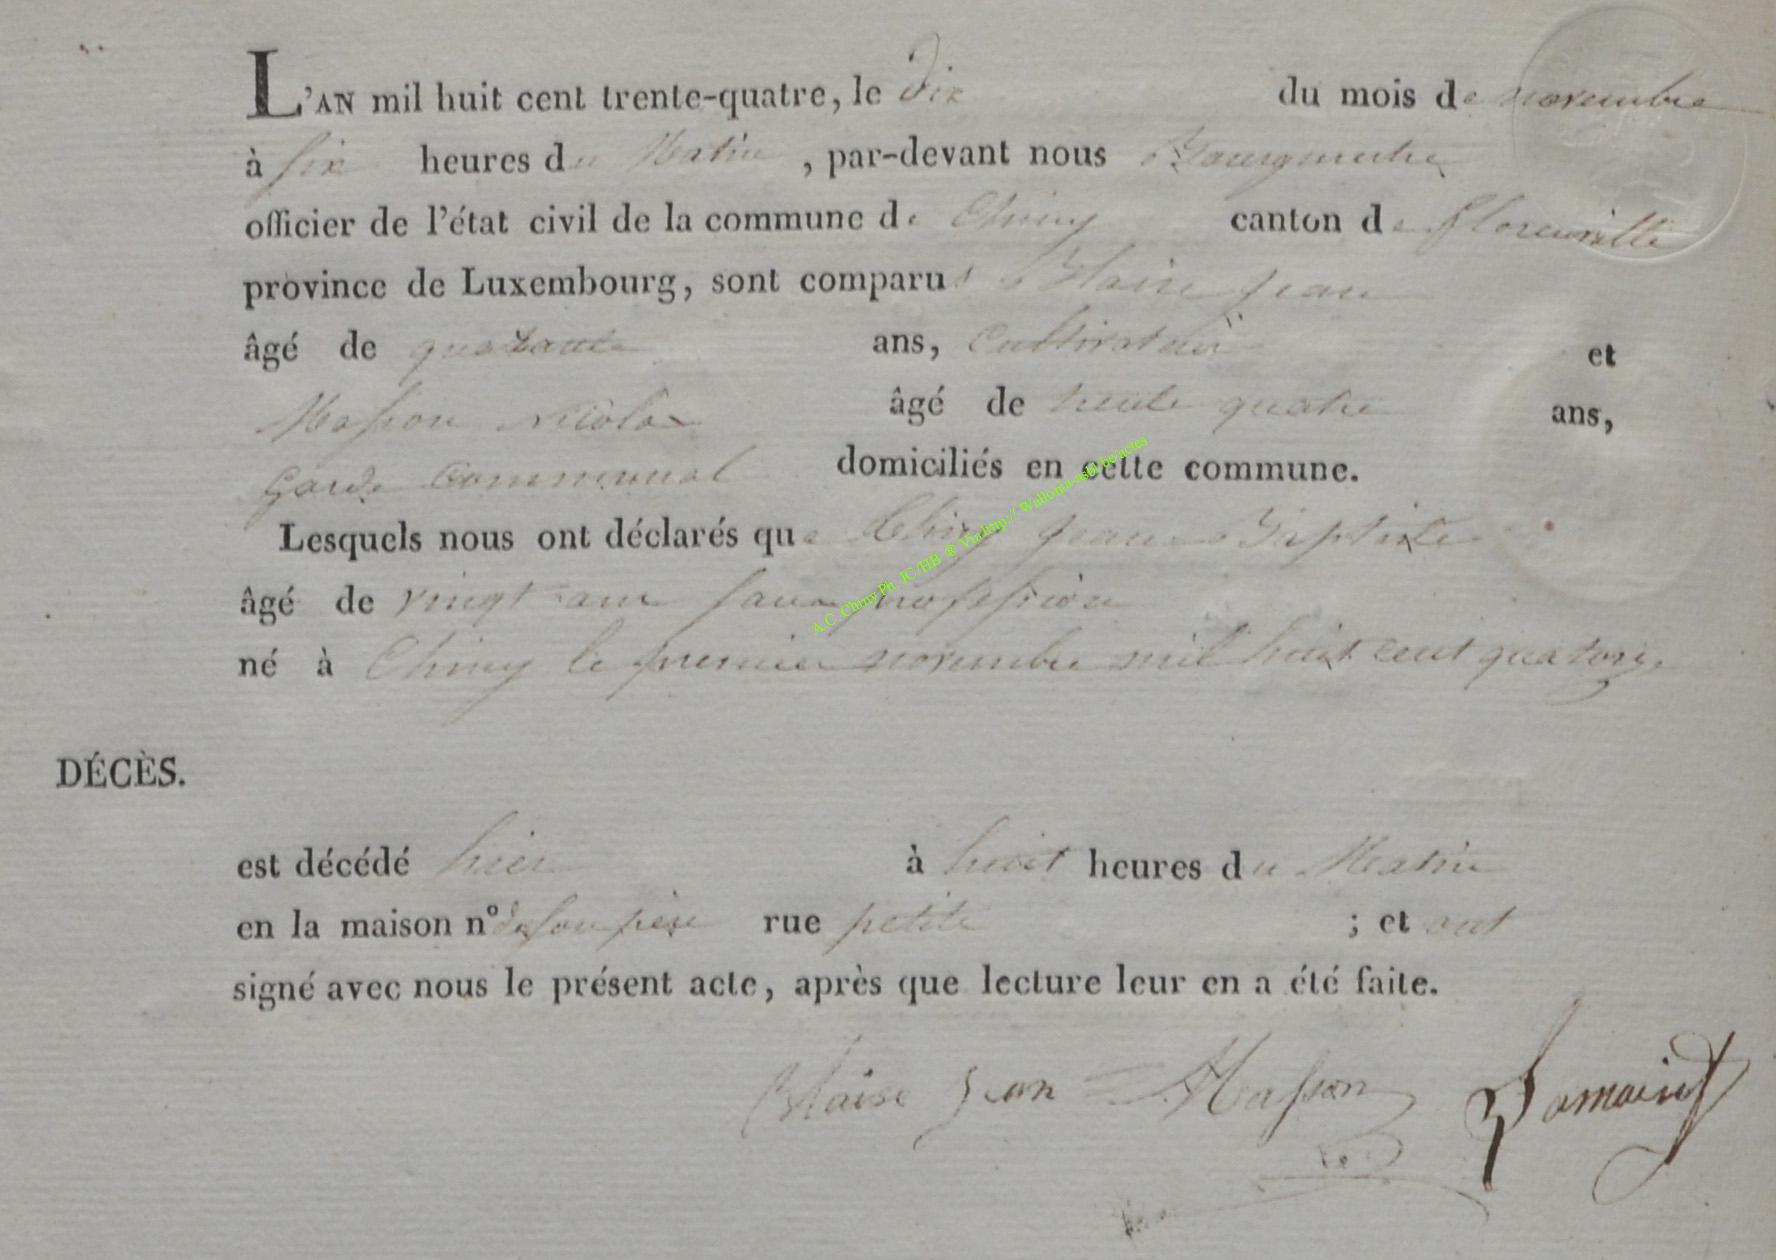 L'AN mil huit cent trente-quatre, le dix du mois de novembre
à six heures du Matin, par-devant nous Bourgmestre
officier de l'état civil de la commune de Chiny canton de Florenville
province de Luxembourg, sont comparus Blaise Jean
âgé de quarante ans, Cultivateur et
Masson Nicolas âgé de trente quatre ans,
garde Communal domiciliés en cette commune.
Lesquels nous ont déclarés que Jean Baptiste
âgé de vingt ans sans profession
né à Chiny le premier novembre mil huit cent quatorze
DÉCÈS.
est décédé hier à huit heures du Matin
en la maison n° de son père rue petite ; et ont
signé avec nous le présent acte, après que lecture leur en a été faite.
Blaise Jean Masson